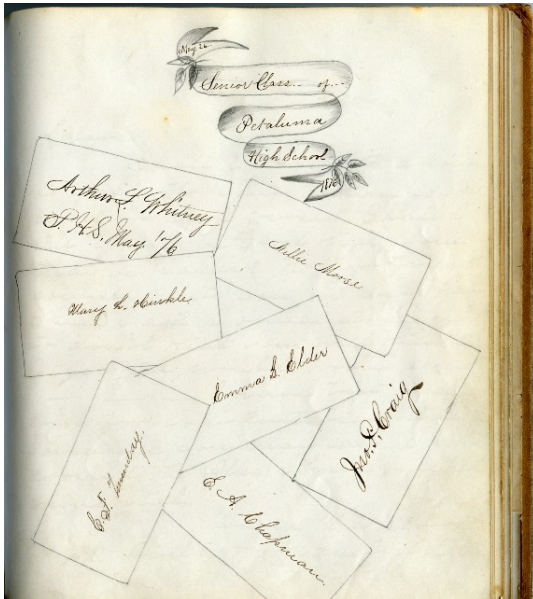 May 26
Senior Class of
Petaluma
High School
1876
Arthur L. Whitney
P. H. S. May '76
Nellie Morse
Mary L. Hinkle
Emma S. Elder
Jno. P. Craig
C. F.
E. A. Chapman.